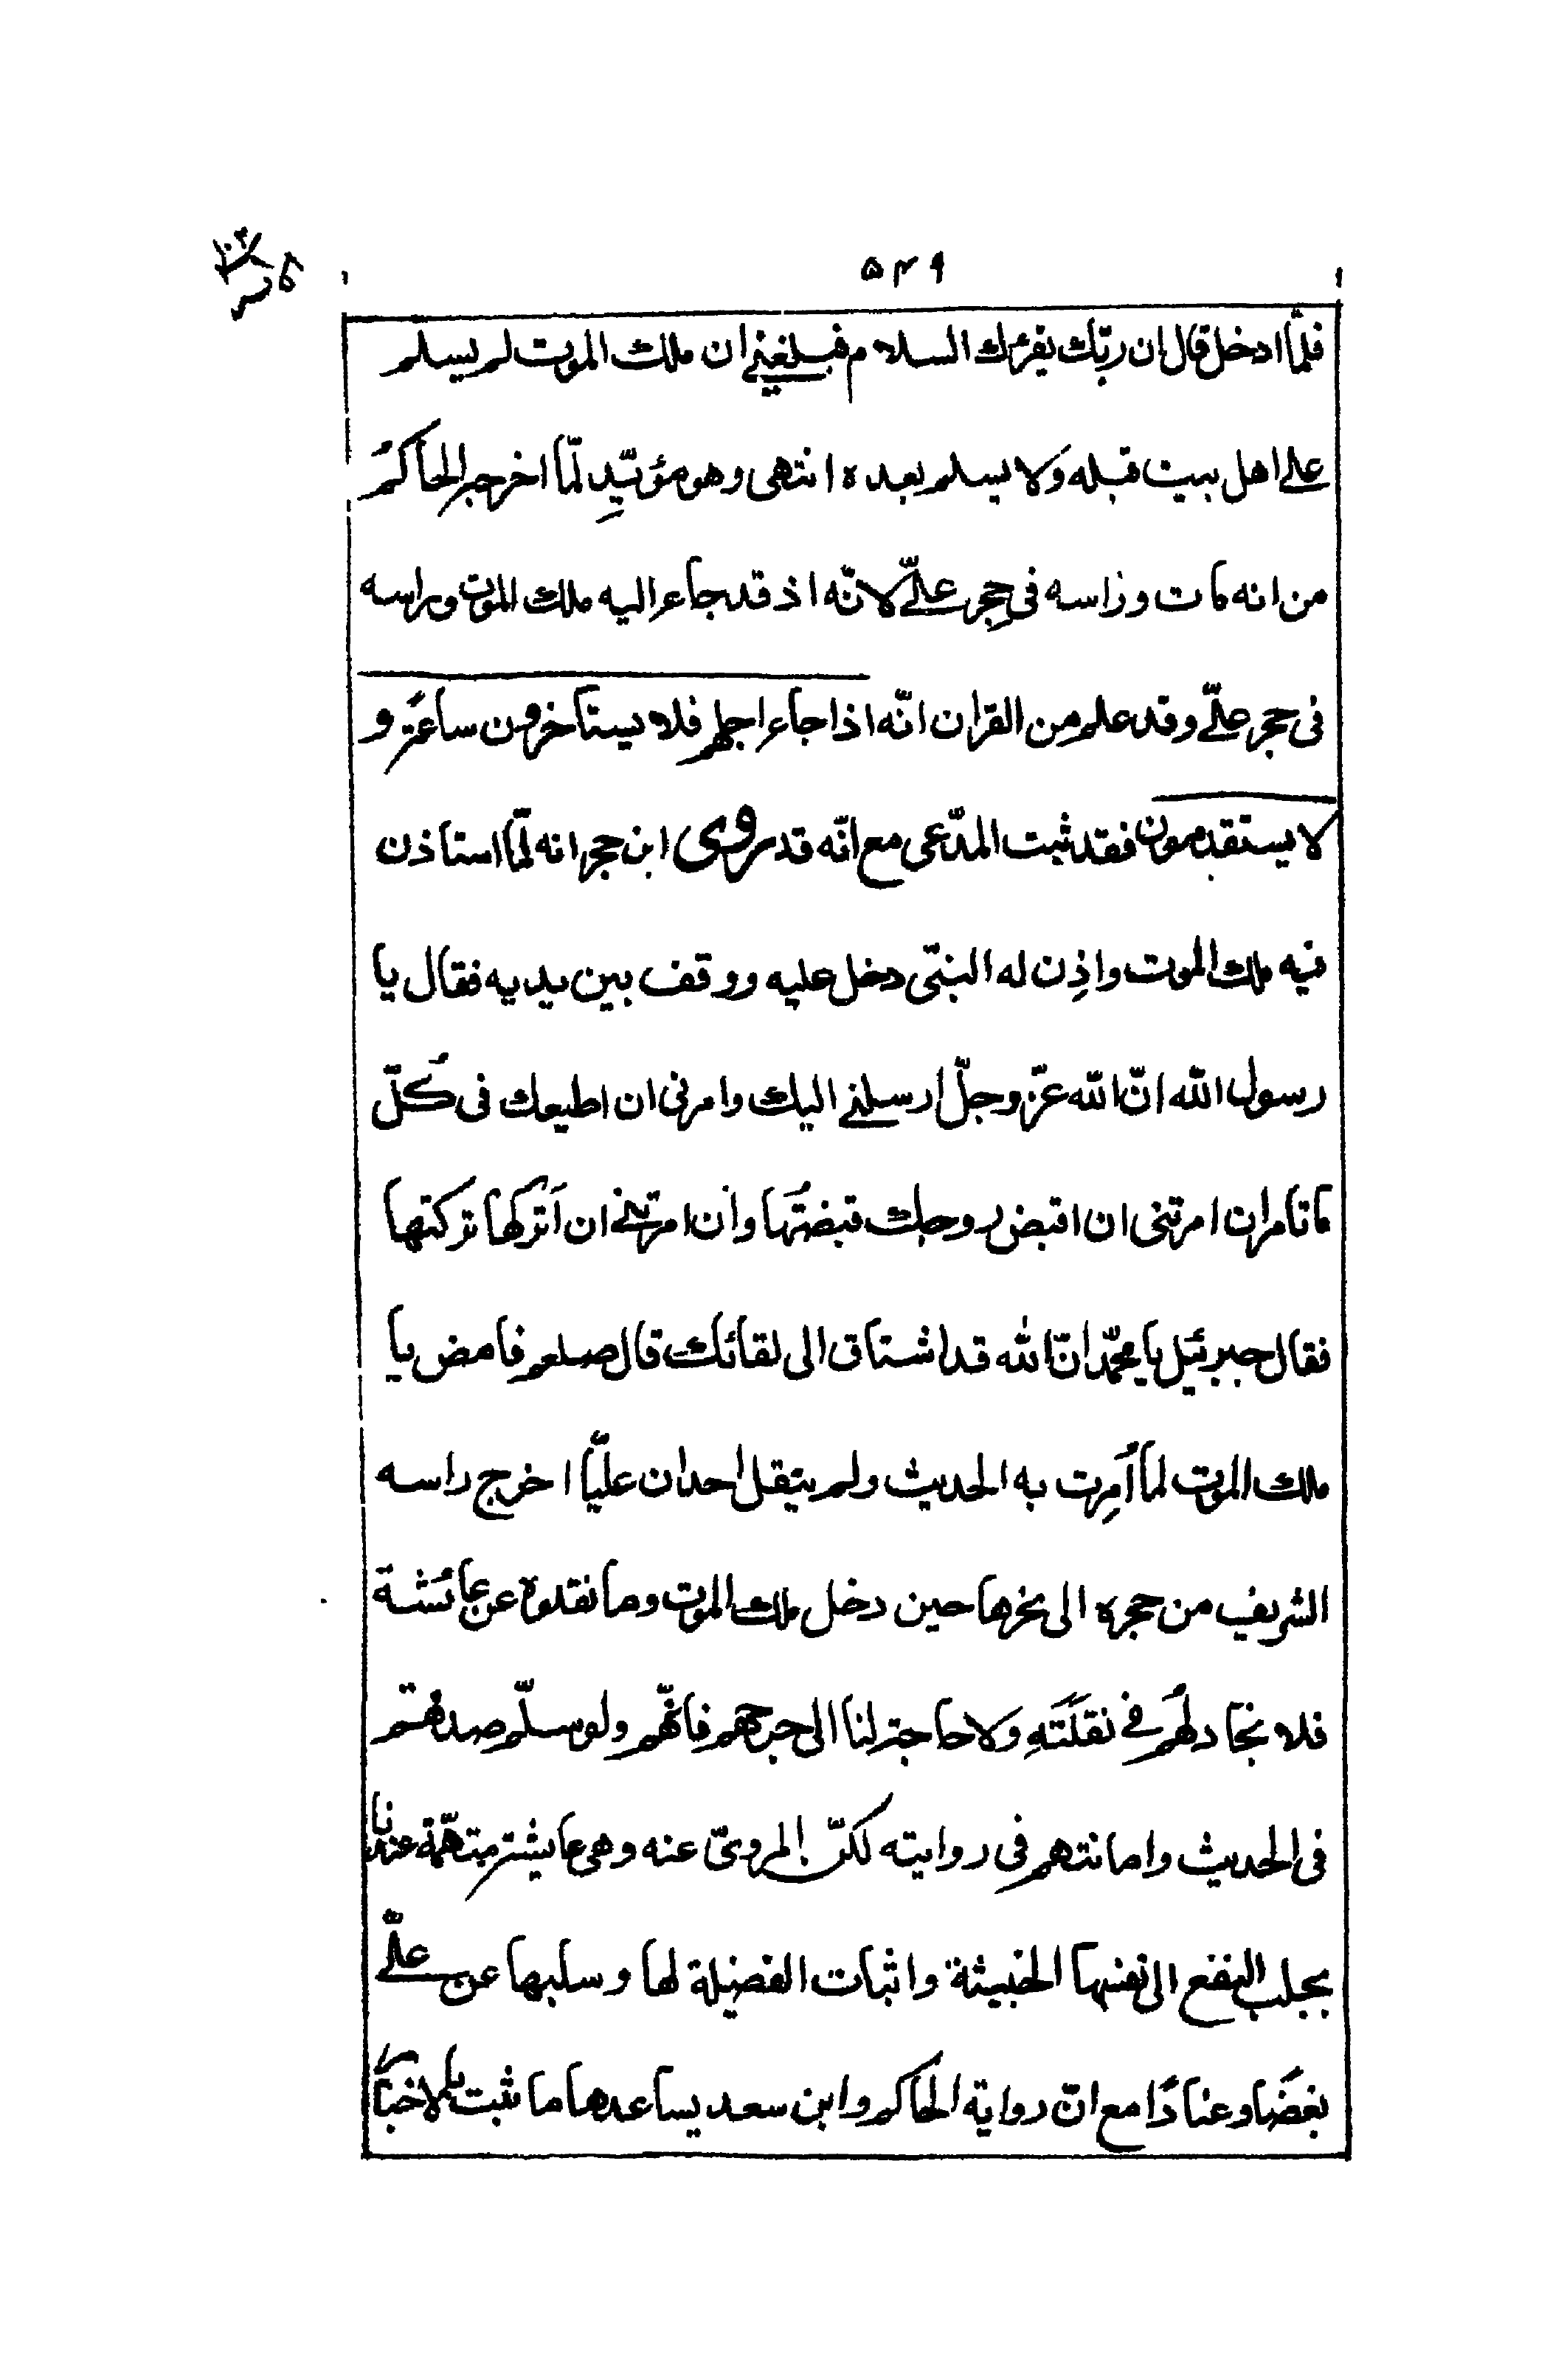 ۵۴۹
فلمّا ادخل قال ان ربّك يقرئك السلام فبلغنى ان ملك الموت لم يسلم
على اهل بيت قبله ولا يسلم بعده انتهى وهو مؤيّد لما اخرجه الحاكم
من انه مات وراسه فى حجر علىّ لانّه اذ قد جاء اليه ملك الموت وراسه
فى حجر علىّ وقد علم من القران انّه اذا جاء اجلهم فلا يستأخرون ساعة و
لا يستقدمون فقد ثبت المدّعى مع انّه قد روى ابن حجر انه لمّا استاذن
فيه ملك الموت واذن له النبىّ دخل عليه ووقف بين يديه فقال يا
رسول الله انّ الله عزّ وجلّ ارسلنى اليك وامرنى ان اطيعك فى كلّ
ما تامر ان امرتنى ان اقبض روحك قبضتها وان امرتنى ان اتركها تركتها
فقال جبرئيل يا محمّد انّ الله قد اشتاق الى لقائك قال صلعم فامض يا
ملك الموت لما اُمِرت به الحديث ولم ينقل احد ان عليّا اخرج راسه
الشريف من حجره الى نحرها حين دخل ملك الموت وما نقلوه عن عائشة
فلا نجادلهم فى نقلته ولا حاجة لنا الى جرحهم فانّهم ولو سلّم صدقهم
فى الحديث وامانتهم فى روايته لكنّ المروىّ عنه وهى عايشة متهمّة عندنا
بجلب النفع الى نفسها الخبيثة واثبات الفضيلة لها وسلبها عن علىّ
بغضًا وعنادًا مع انّ رواية الحاكم وابن سعد يساعدها ما ثبت بالاخبار